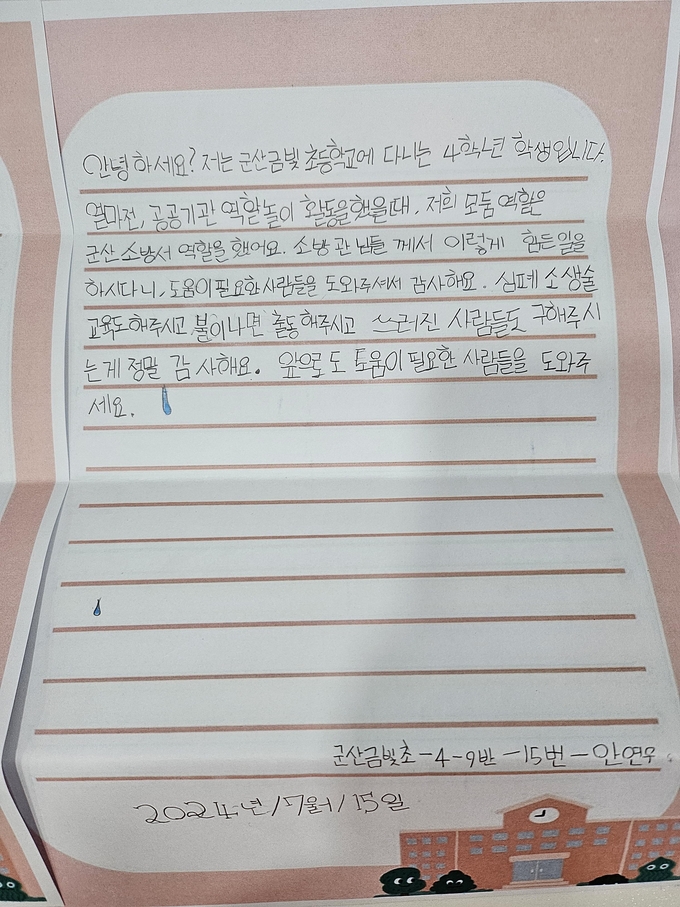 안녕하세요? 저는 군산금빛초등학교에 다니는 4학년 학생입니다.
얼마전, 공공기관 역할놀이 활동을 했을때, 저희 모둠 역할은
군산소방서 역할을 했어요. 소방관님들 께서 이렇게 힘든일을
하시다니, 도움이 필요한 사람들을 도와주셔서 감사해요. 심폐소생술
교육도해주시고 불이나면 출동해주시고 쓰러진 사람들도 구해주시
는게 정말 감사해요. 앞으로도 도움이 필요한 사람들을 도와주
세요.
군산금빛초-4-9반-15번-안연우
2024년/7월/15일